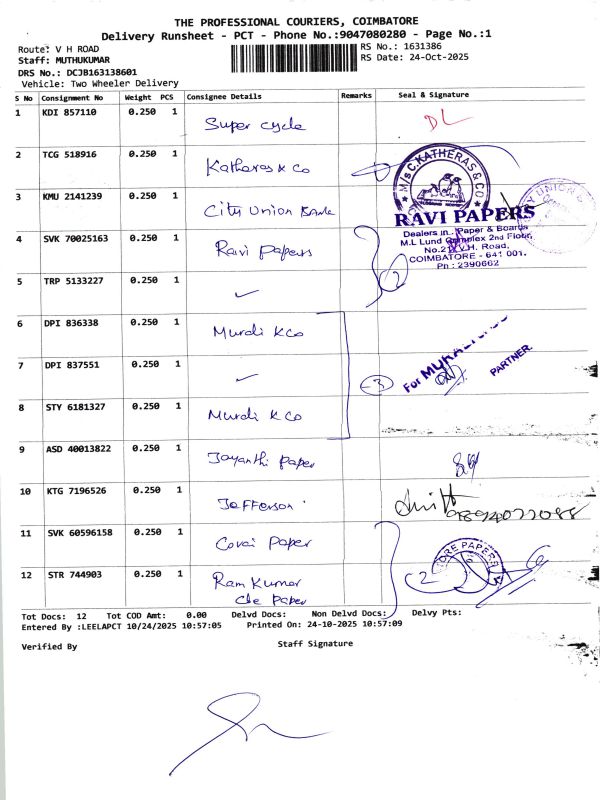 THE PROFESSIONAL COURIERS, COIMBATORE
Delivery Runsheet - PCT - Phone No.:9047080280 - Page No.:1
Route: V H ROAD
RS No.: 1631386
Staff: MUTHUKUMAR
RS Date: 24-Oct-2025
DRS No.: DCJB163138601
Vehicle: Two Wheeler Delivery
S No Consignment No Weight PCS Consignee Details Remarks Seal & Signature
1 KDI 857110 0.250 1 Super cycle DL
2 TCG 518916 0.250 1 Katheras k Co
M/s C.KATHERAS & CO
3 KMU 2141239 0.250 1 City Union Bank
RAVI PAPERS
Dealers in: Paper & Boards
M.L Lund Complex 2nd Floor,
V.H. Road,
COIMBATORE - 641 001.
Ph : 2390662
4 SVK 70025163 0.250 1 Ravi papers 2
5 TRP 5133227 0.250 1 ✓
6 DPI 836338 0.250 1 Murali k Co
7 DPI 837551 0.250 1 ✓ 3
For
PARTNER.
8 STY 6181327 0.250 1 Murali k Co
9 ASD 40013822 0.250 1 Jayanthi paper
10 KTG 7196526 0.250 1 Jefferson
11 SVK 60596158 0.250 1 Covai paper
12 STR 744903 0.250 1 Ram Kumar
cle paper
2
Tot Docs: 12 Tot COD Amt: 0.00 Delvd Docs: Non Delvd Docs: Delvy Pts:
Entered By :LEELAPCT 10/24/2025 10:57:05 Printed On: 24-10-2025 10:57:09
Verified By Staff Signature